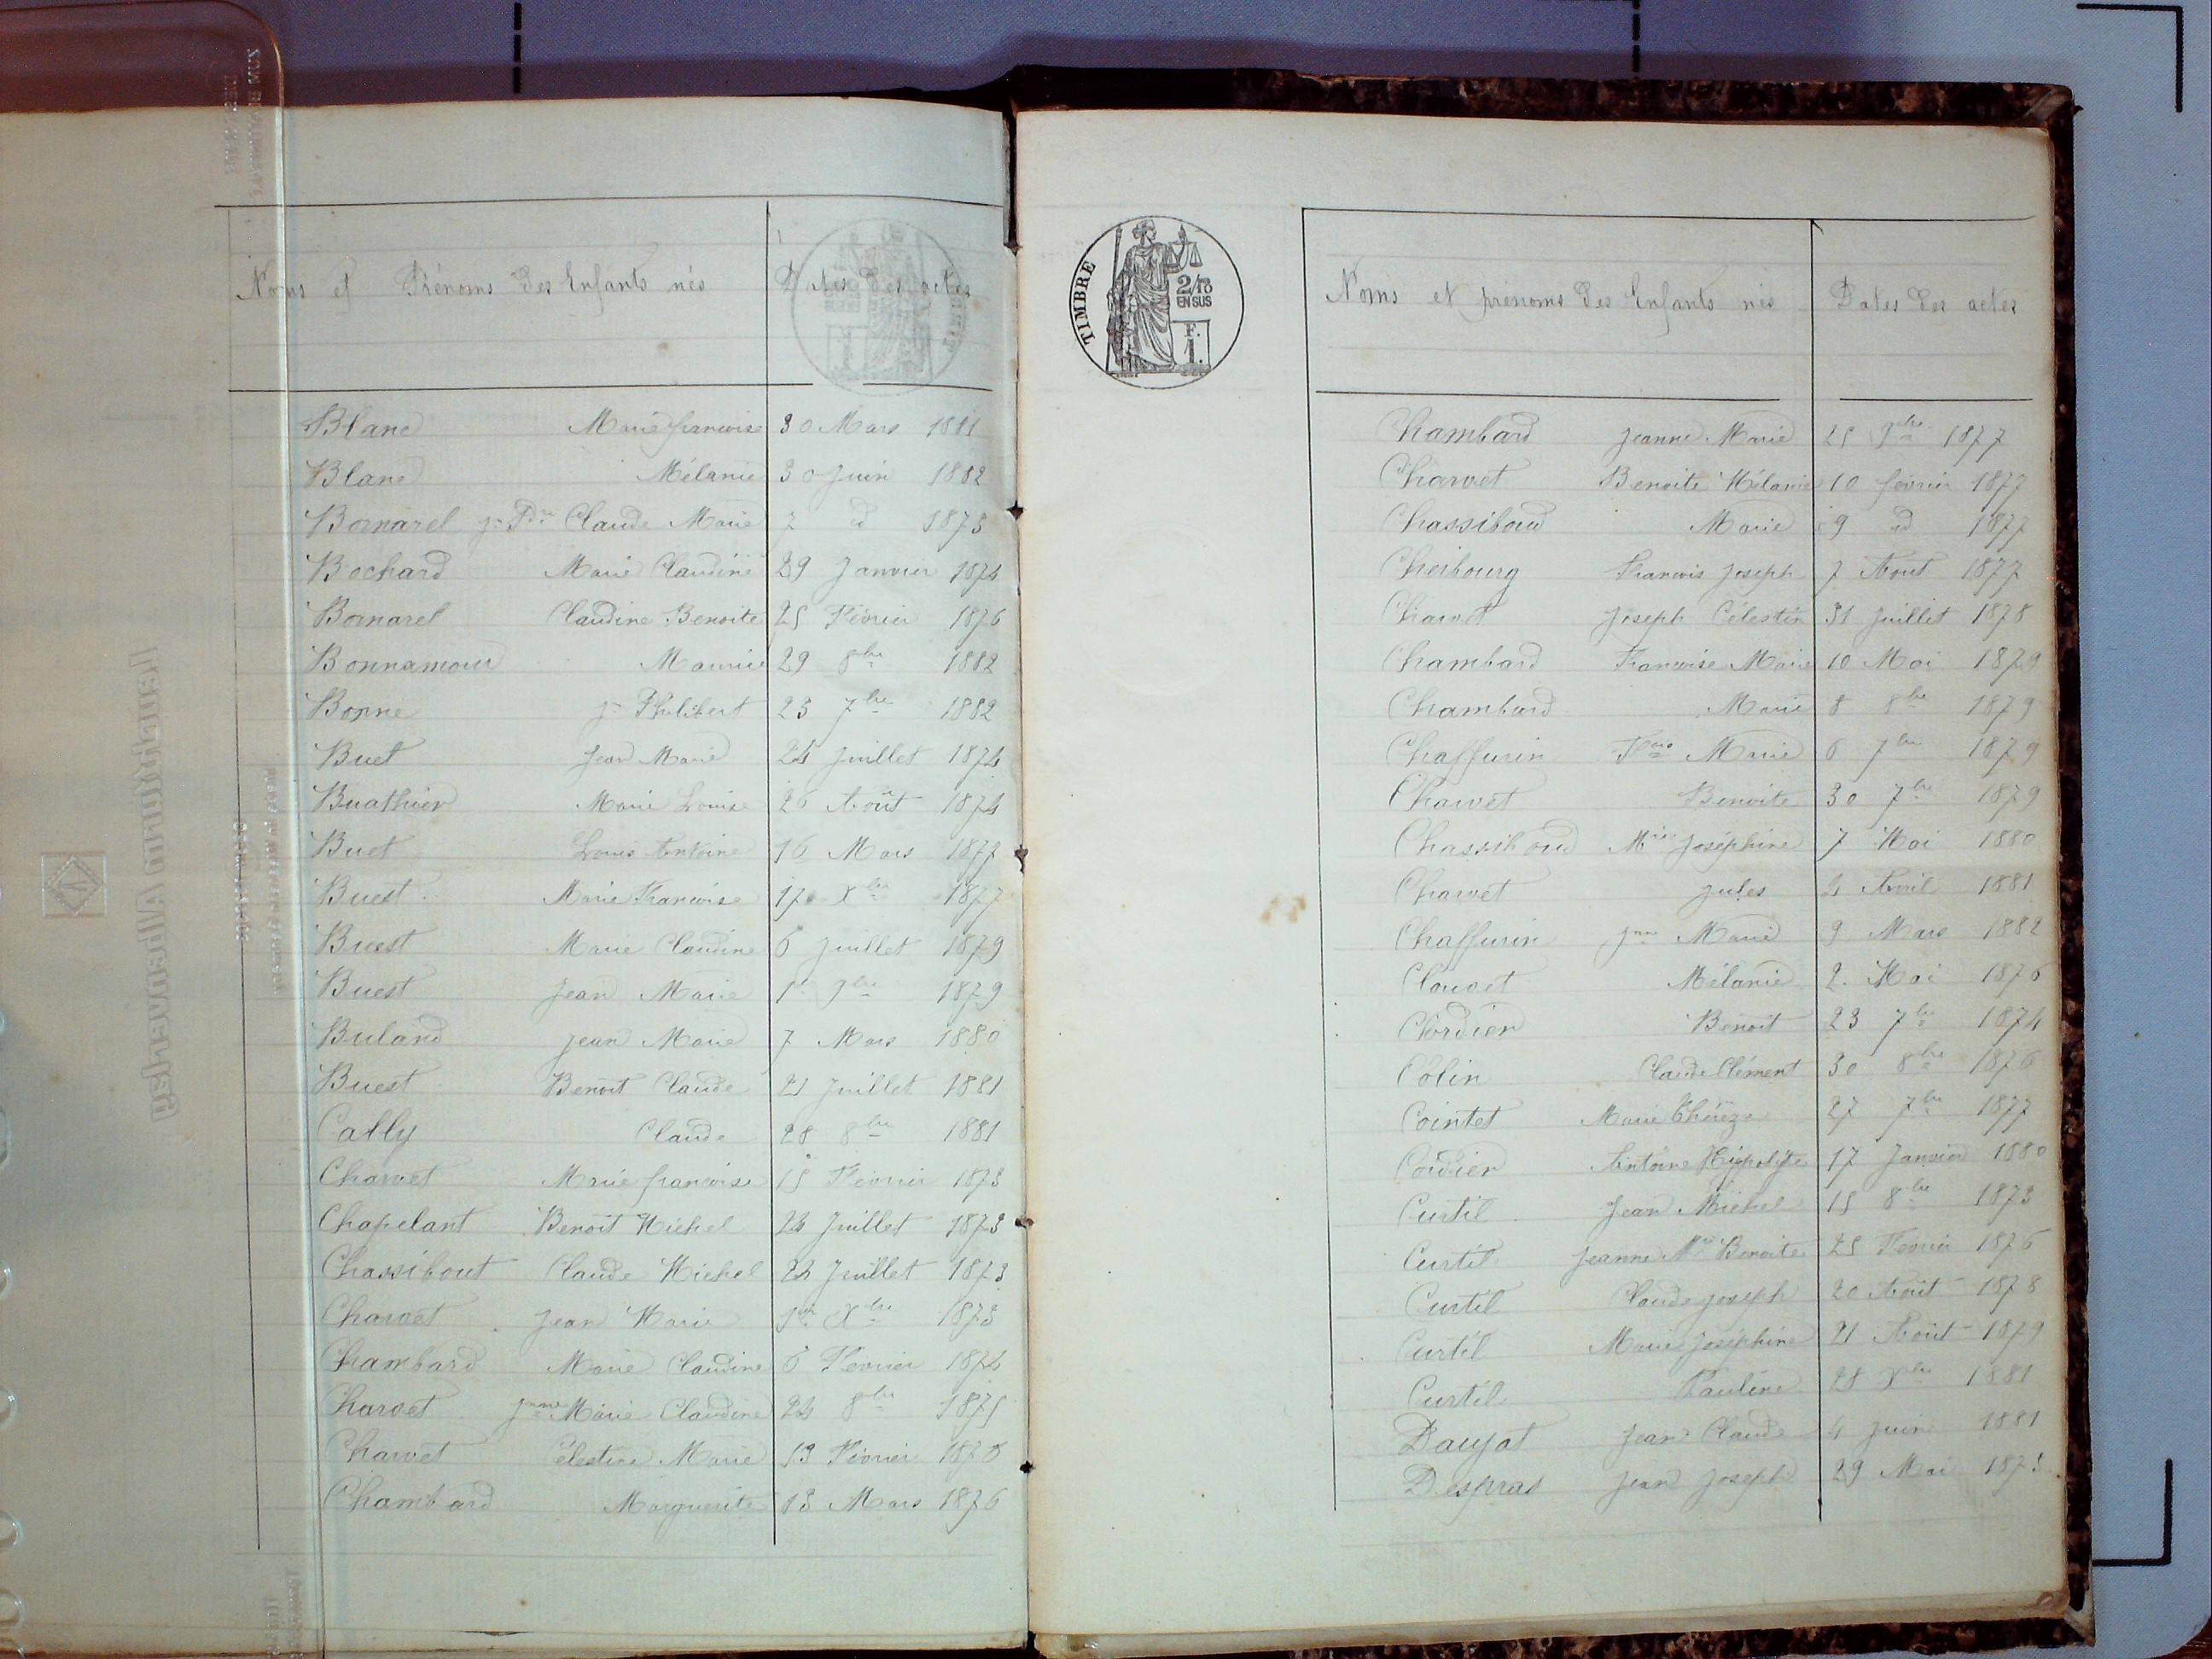 Noms et Prénoms des Enfants nés Dates des actes
Blanc Marie françoise 30 Mars 1881
Blanc Mélanie 30 Juin 1882
Bornarel Claude Marie 7 d 1873
Bochard Marie Claudine 29 Janvier 1874
Bornarel Claudine Benoite 25 Février 1876
Bonnamour Maurice 29 8bre 1882
Borne Philibert 23 7bre 1882
Buet Jean Marie 24 Juillet 1874
Buathier Marie Louise 26 Août 1874
Buet Louis Antoine 16 Mars 1877
Buest Marie Françoise 17 Xbre 1877
Buest Marie Claudine 6 Juillet 1879
Buest Jean Marie 1er 9bre 1879
Buland Jean Marie 7 Mars 1880
Buest Benoit Claude 21 Juillet 1881
Cally Claude 28 8bre 1881
Charvet Marie françoise 15 Février 1873
Chapelant Benoit Michel 24 Juillet 1873
Chassibout Claude Michel 24 Juillet 1873
Charvet Jean Marie 1er Xbre 1873
Chambard Marie Claudine 6 Février 1874
Charvet Jnne Marie Claudine 24 8bre 1875
Charvet Célestine Marie 13 Février 1876
Chambard Marguerite 13 Mars 1876
TIMBRE
2/10
EN SUS
F.
1.
Noms et prénoms des Enfants nés Dates des actes
Chambard Jeanne Marie 25 9bre 1877
Charvet Benoite Mélanie 10 février 1877
Chassiboud Marie 9 d 1877
Cherbourg François Joseph 7 Août 1877
Charvet Joseph Célestin 31 Juillet 1878
Chambard Françoise Marie 10 Mai 1879
Chambard Marie 8 8bre 1879
Chaffurin Marie 6 7bre 1879
Charvet Benoite 30 7bre 1879
Chassiboud Mie Joséphine 7 Mai 1880
Charvet Jules 4 Avril 1881
Chaffurin Jnne Marie 9 Mars 1882
Clouset Mélanie 2 Mai 1876
Cordier Benoit 23 7bre 1874
Colin Claude Clément 30 8bre 1876
Cointet Marie Théreze 27 7bre 1877
Cordier Antoine Hippolyte 17 Janvier 1880
Curtil Jean Michel 15 8bre 1873
Curtil Jeanne Mie Benoite 25 Février 1876
Curtil Claude Joseph 20 Août 1878
Curtil Marie Joséphine 21 Août 1879
Curtil Pauline 28 Xbre 1881
Daujat Jean Claude 4 Juin 1881
Despras Jean Joseph 29 Mai 1873